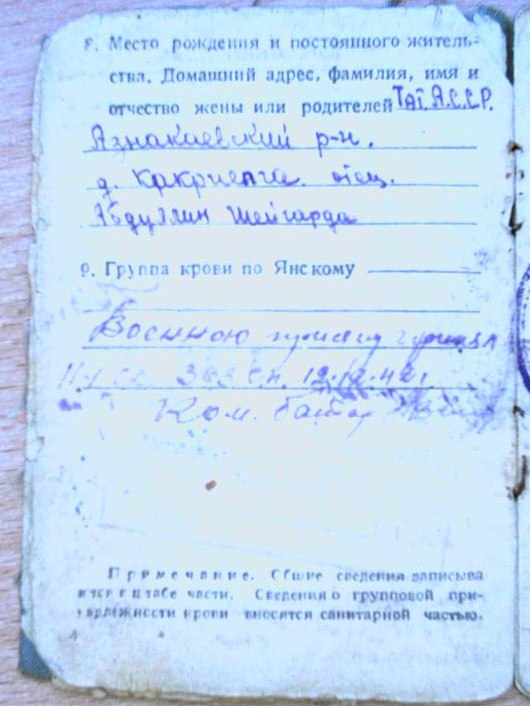 8. Место рождения и постоянного житель-
ства. Домашний адрес, фамилия, имя и
отчество жены или родителей Тат. А.С.С.Р.
Азнакаевский р-н.
д. Какриелга. отец.
Абдуллин Шейгарда
9. Группа крови по Янскому
Военною присягу принял
363 сп.
Ком. бат
Примечание. Общие сведения записыва
ются в штабе части. Сведения о групповой при-
надлежности крови вносятся санитарной частью.
4